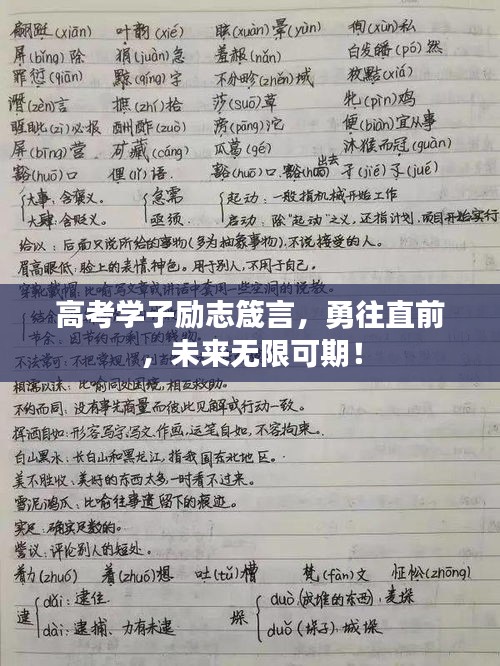 翩跹(xiān) 叶韵(xié) 眩(xuàn)晕(yùn) 徇(xùn)私
屏(bǐng)除 狷(juàn)急 羞赧(nǎn) 白发皤(pó)然
罪愆(qiān) 黥(qíng)字 不分畛(zhěn)域 狡黠(xiá)
谮(zèn)言 摭(zhí)拾 莎(suō)草 牝(pìn)鸡
睚眦(zì)必报 酬酢(zuò) 滂(pāng)沱 便(biàn)宜从事
屏(bīng)营 矿藏(cáng) 瓜葛(gé) 沐猴而冠(guàn)
豁(huō)口 俚(lǐ)语 豁(huō)口 豁(huō)出去 孑(jié)孓(jué)
大事:含褒义。 急需 起动:一般指机械开始工作
大肆:含贬义。 亟须 启动:除"起动"之义,还指计划、项目开始实行
给以:后面只说所给的事物(多为抽象事物),不说接受的人。
眉高眼低:脸上的表情、神色。用于别人,不用于自己。
高考学子励志箴言,勇往直前
,未来无限可期!
相濡以沫:比喻同处困境,相互救助。
不约而同:没有事先商量而彼此见解或行动一致。
挥洒自如:形容写字、写文、作画,运笔自如,不容拘束。
白山黑水:长白山和黑龙江,指我国东北地区。
美不胜收:美好的东西太多,一时看不过来。
雪泥鸿爪:比喻往事遗留下的痕迹。
实足:确实足数的。
訾议:评论别人的短处。
着力(zhuó) 着(zhuó)想 吐(tǔ)槽 梵(fàn)文 怔忪(zhōng)
逮 dǎi:逮住 垛 duò(成堆的东西):麦垛
dài:逮捕、力有未逮 duǒ(垛子):城垛